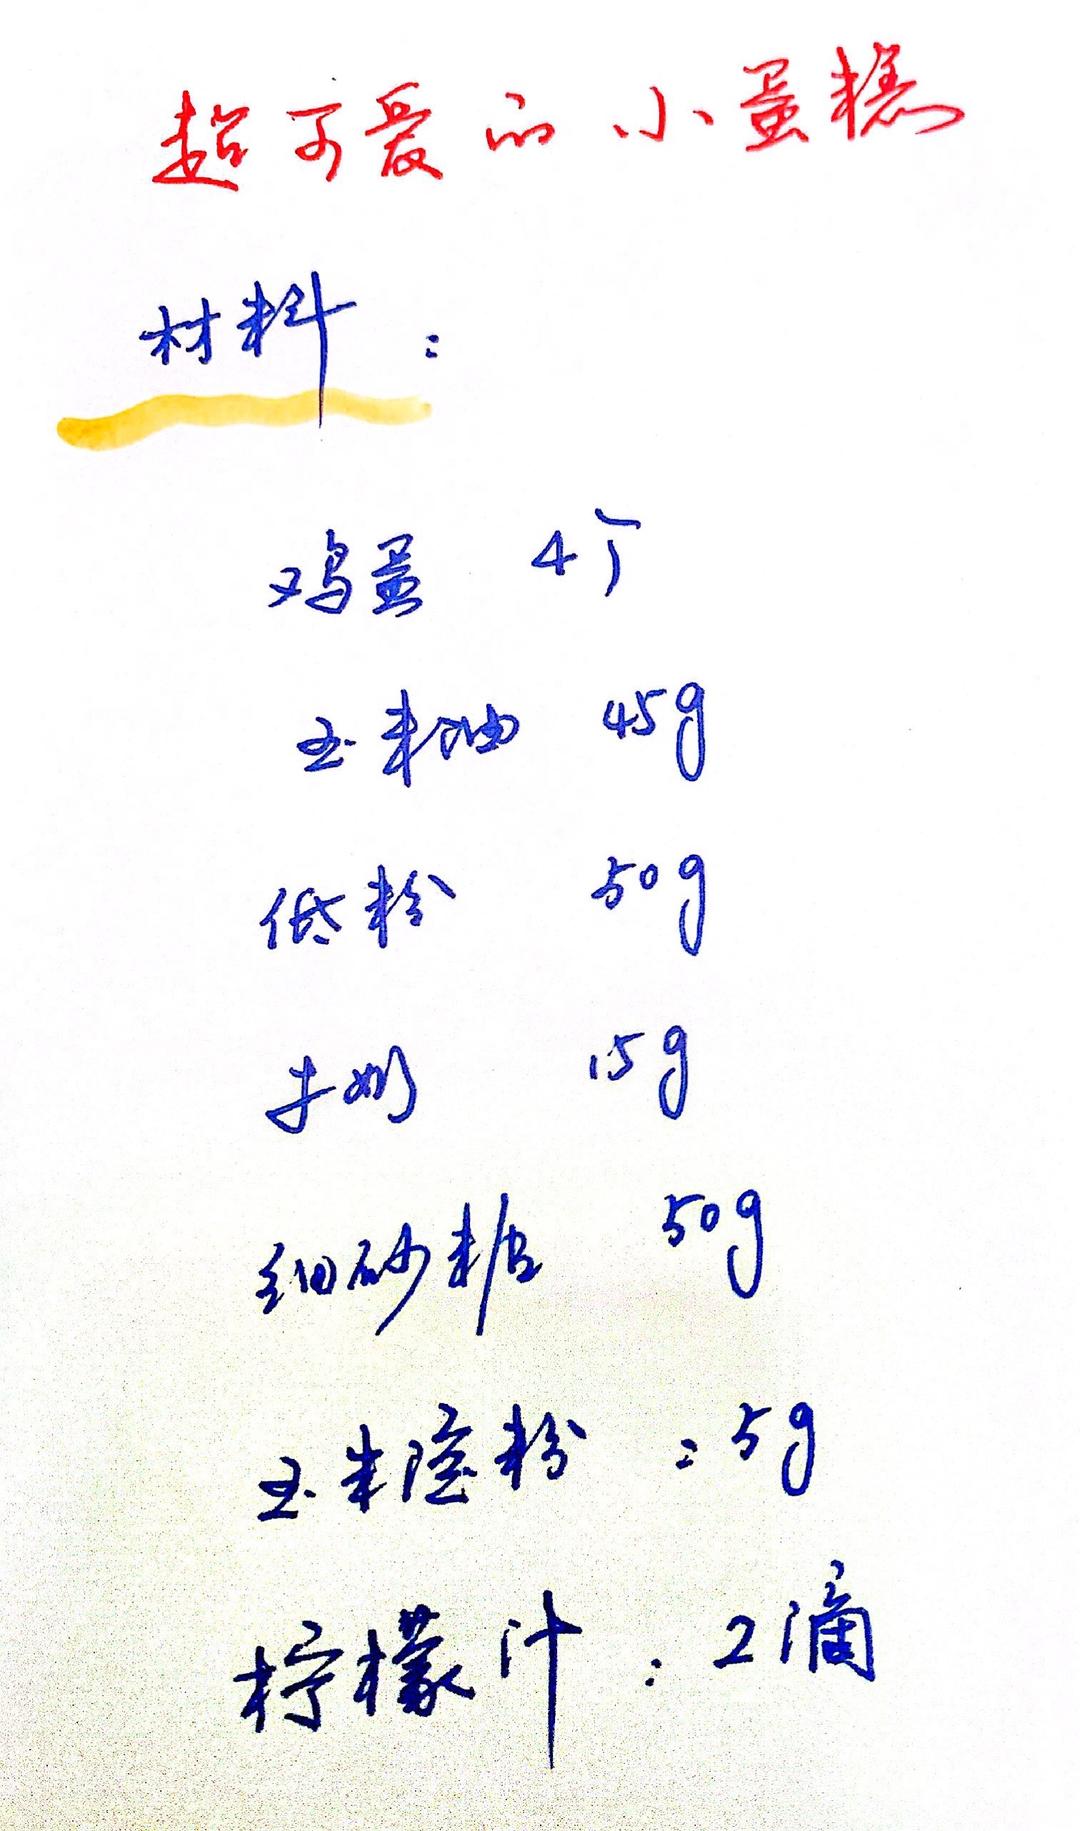 超可爱的小蛋糕
材料：
鸡蛋 4个
玉米油 45g
低粉 50g
牛奶 15g
细砂糖 50g
玉米淀粉：5g
柠檬汁：2滴